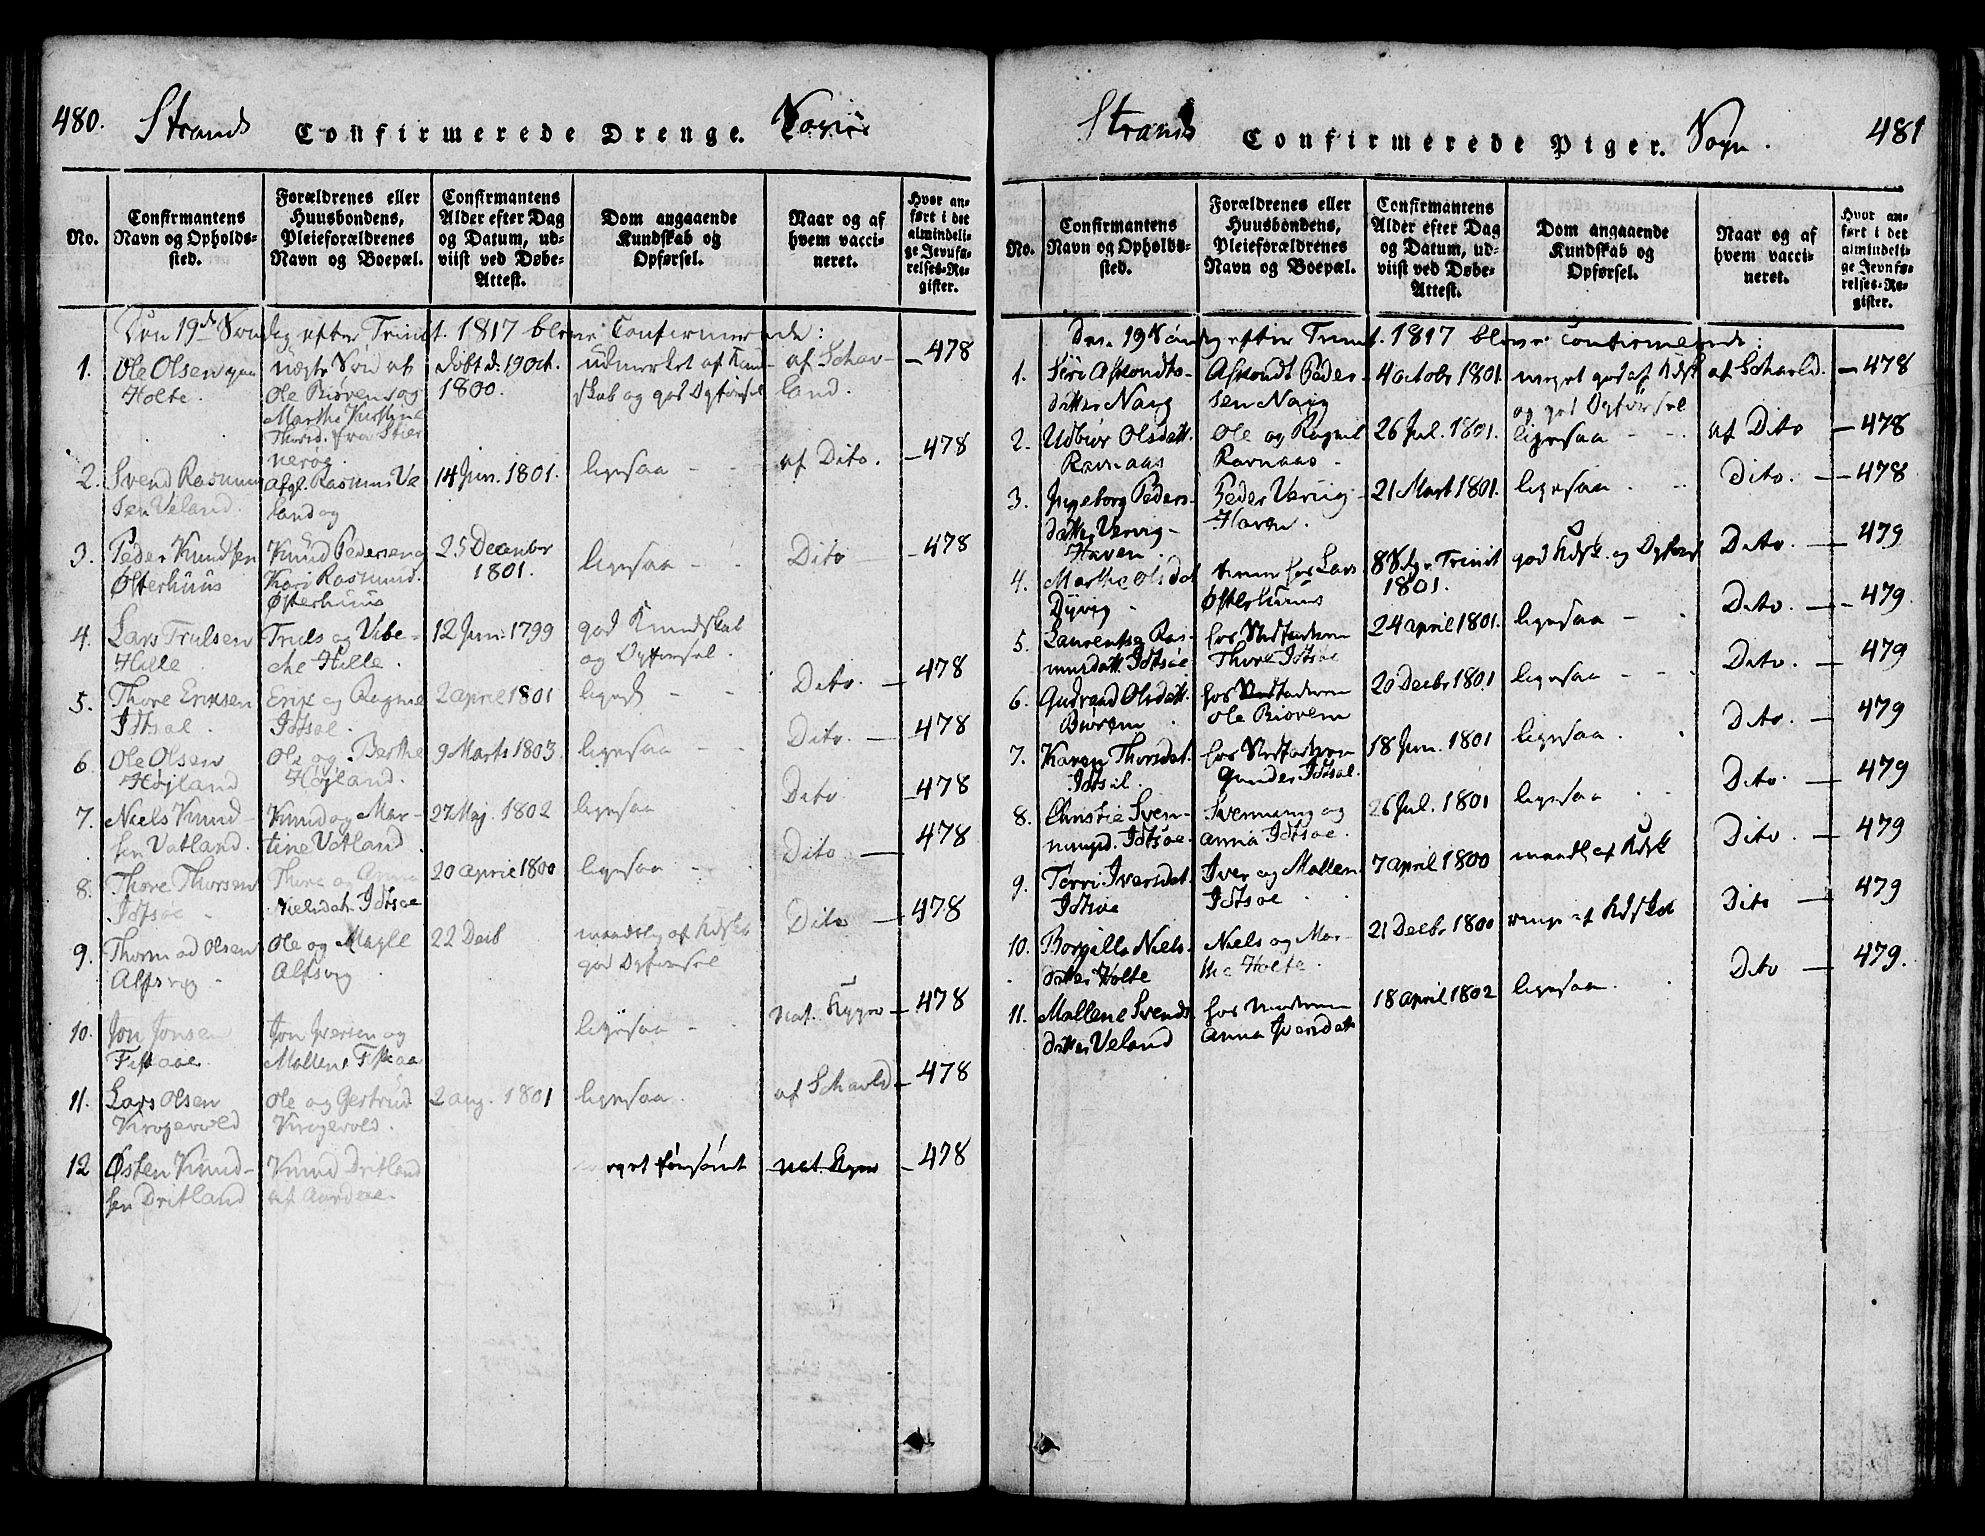 480. Strands Confirmerede Drenge.
No.
Confirmantens Navn og Opholds-sted.
Forældrenes eller Huusbondens, Pleieforældrenes Navn og Boepæl.
Confirmantens Alder efter Dag og Datum, ud-viist ved Døbe-Attest.
Dom angaaende Kundskab og Opførsel.
Naar og af hvem vacci-neret.
Hvor an-ført i det almindeli-ge Jevnfø-relses-Re-gister.
19de efter Trinit. 1817 bleve Confirmerede:
1. Ole Olsen
Holte.
uægte Søn af
Ole Biøvens og
Marthe
Thorsd. fra
døbt d. 19 Oct.
1800.
udmerket af Kund-
skab og god Opførsel
af Schav-
land.
478
2. Svend Rasmus
sen Veland.
Afgl. Rasmus Ve
land og
14 Jun. 1801.
ligesaa
af Dito.
478
3. Peder Knudsen
Østerhuus
Knud Pedersen og
Kari Rasmusd.
Østerhuus
25 December
1801.
ligesaa
Dito
478
4. Lars Trulsen
Hille.
Truls og Vibe-
che Hille.
12 Jun. 1799
god Kundskab
og Opførsel.
Dito.
478
5. Thore Eriksen
Idtsøe.
Erik og Ragnel
Idtsøe.
2 april 1801
Dito.
478
6. Ole Olsen
Højland
Ole og Berthe
Højland.
9 Marts 1803.
ligesaa
Dito
478
7. Niels Knud-
sen Vatland.
Knud og Mar-
tine Vatland.
27 Maj. 1802
ligesaa
Dito
478
8. Thore Thorsen
Idtsøe
Thore og Anna
Nielsdat. Idtsøe
20 april 1800
ligesaa
Dito
478
9. Thormod Olsen
Alfsvig
Ole og
Alfsvig
22 Decb
maadelig af Kdskb
god Opførsel
nat. Kopper
478
10. Jon Jonsen
Fiskaae.
Jon Iversen og
Mallene Fiskaa
ligesaa
af Schavld
478
11. Lars Olsen
Krogevold
Ole og Gertrud
Krogevold.
2 aug. 1801
ligesaa.
12 Østen Knud-
sen Dritland
Knud Dritland
af Aardal.
nat. Kopr
478
Strands Confirmerede Piger. Sogn. 481
No.
Confirmantens Navn og Opholds-sted.
Forældrenes eller Huusbondens, Pleieforældrenes Navn og Boepæl.
Confirmantens Alder efter Dag og Datum, ud-viist ved Døbe-Attest.
Dom angaaende Kundskab og Opførsel.
Naar og af hvem vacci-neret.
Hvor an-ført i det almindeli-ge Jevnfø-relses-Re-gister.
19 efter Trinit. 1817 bleve Confirmerede:
1. Siri Asmondts-
datter Naug
Asmondt Peder-
sen Naug
4 octobr 1801.
meget god af Kdsk
og god Opførsel
af Schavld.
478
2. Udbiør Olsdatt.
Ravnaas
Ole og Ragnel
Ravnaas
26 Jul. 1801.
ligesaa
af Dito
478
3. Ingeborg Peders-
datter Vervig-
Haven.
Peder Vervig-
Haven.
21 Mart 1801.
ligesaa
Dito.
478
4. Marthe Olsdat
Dyvig
tiener hos Lars
Østerhuus
8 Trinit
1801.
god Kdsk. og Opførsel
Dito.
479
5. Laurentse Ras-
musdatt Idtsøe
hos
Thore Idtsøe
24 april 1801.
ligesaa
Dito.
479
6. Gudrand Olsdatt.
Biørem
hos
Ole Biøvem
20 Decbr 1801
ligesaa
Dito.
479
7. Karen Thorsdat.
Idtsøe.
hos
Gunder Idtsøe.
18 Jun. 1801
ligesaa.
Dito.
479
8. Christie Sven-
nungsd. Idtsøe.
Svennung og
Anna Idtsøe.
26 Jul. 1801
ligesaa
Dito.
479
9. Torri Iversdat.
Idtsøe
Iver og Mallene
Idtsøe
7 april 1800
maadl. af Kdsk
Dito
479
10. Borgille Niels-
datter Holte
Niels og Mar-
the Holte.
21 Decbr 1800
ringe af Kdskab
Dito
479
11. Mallene Svends
datter Veland
hos Moderen
Anna Iversdatt
18 april 1802
ligesaa.
Dito
479.